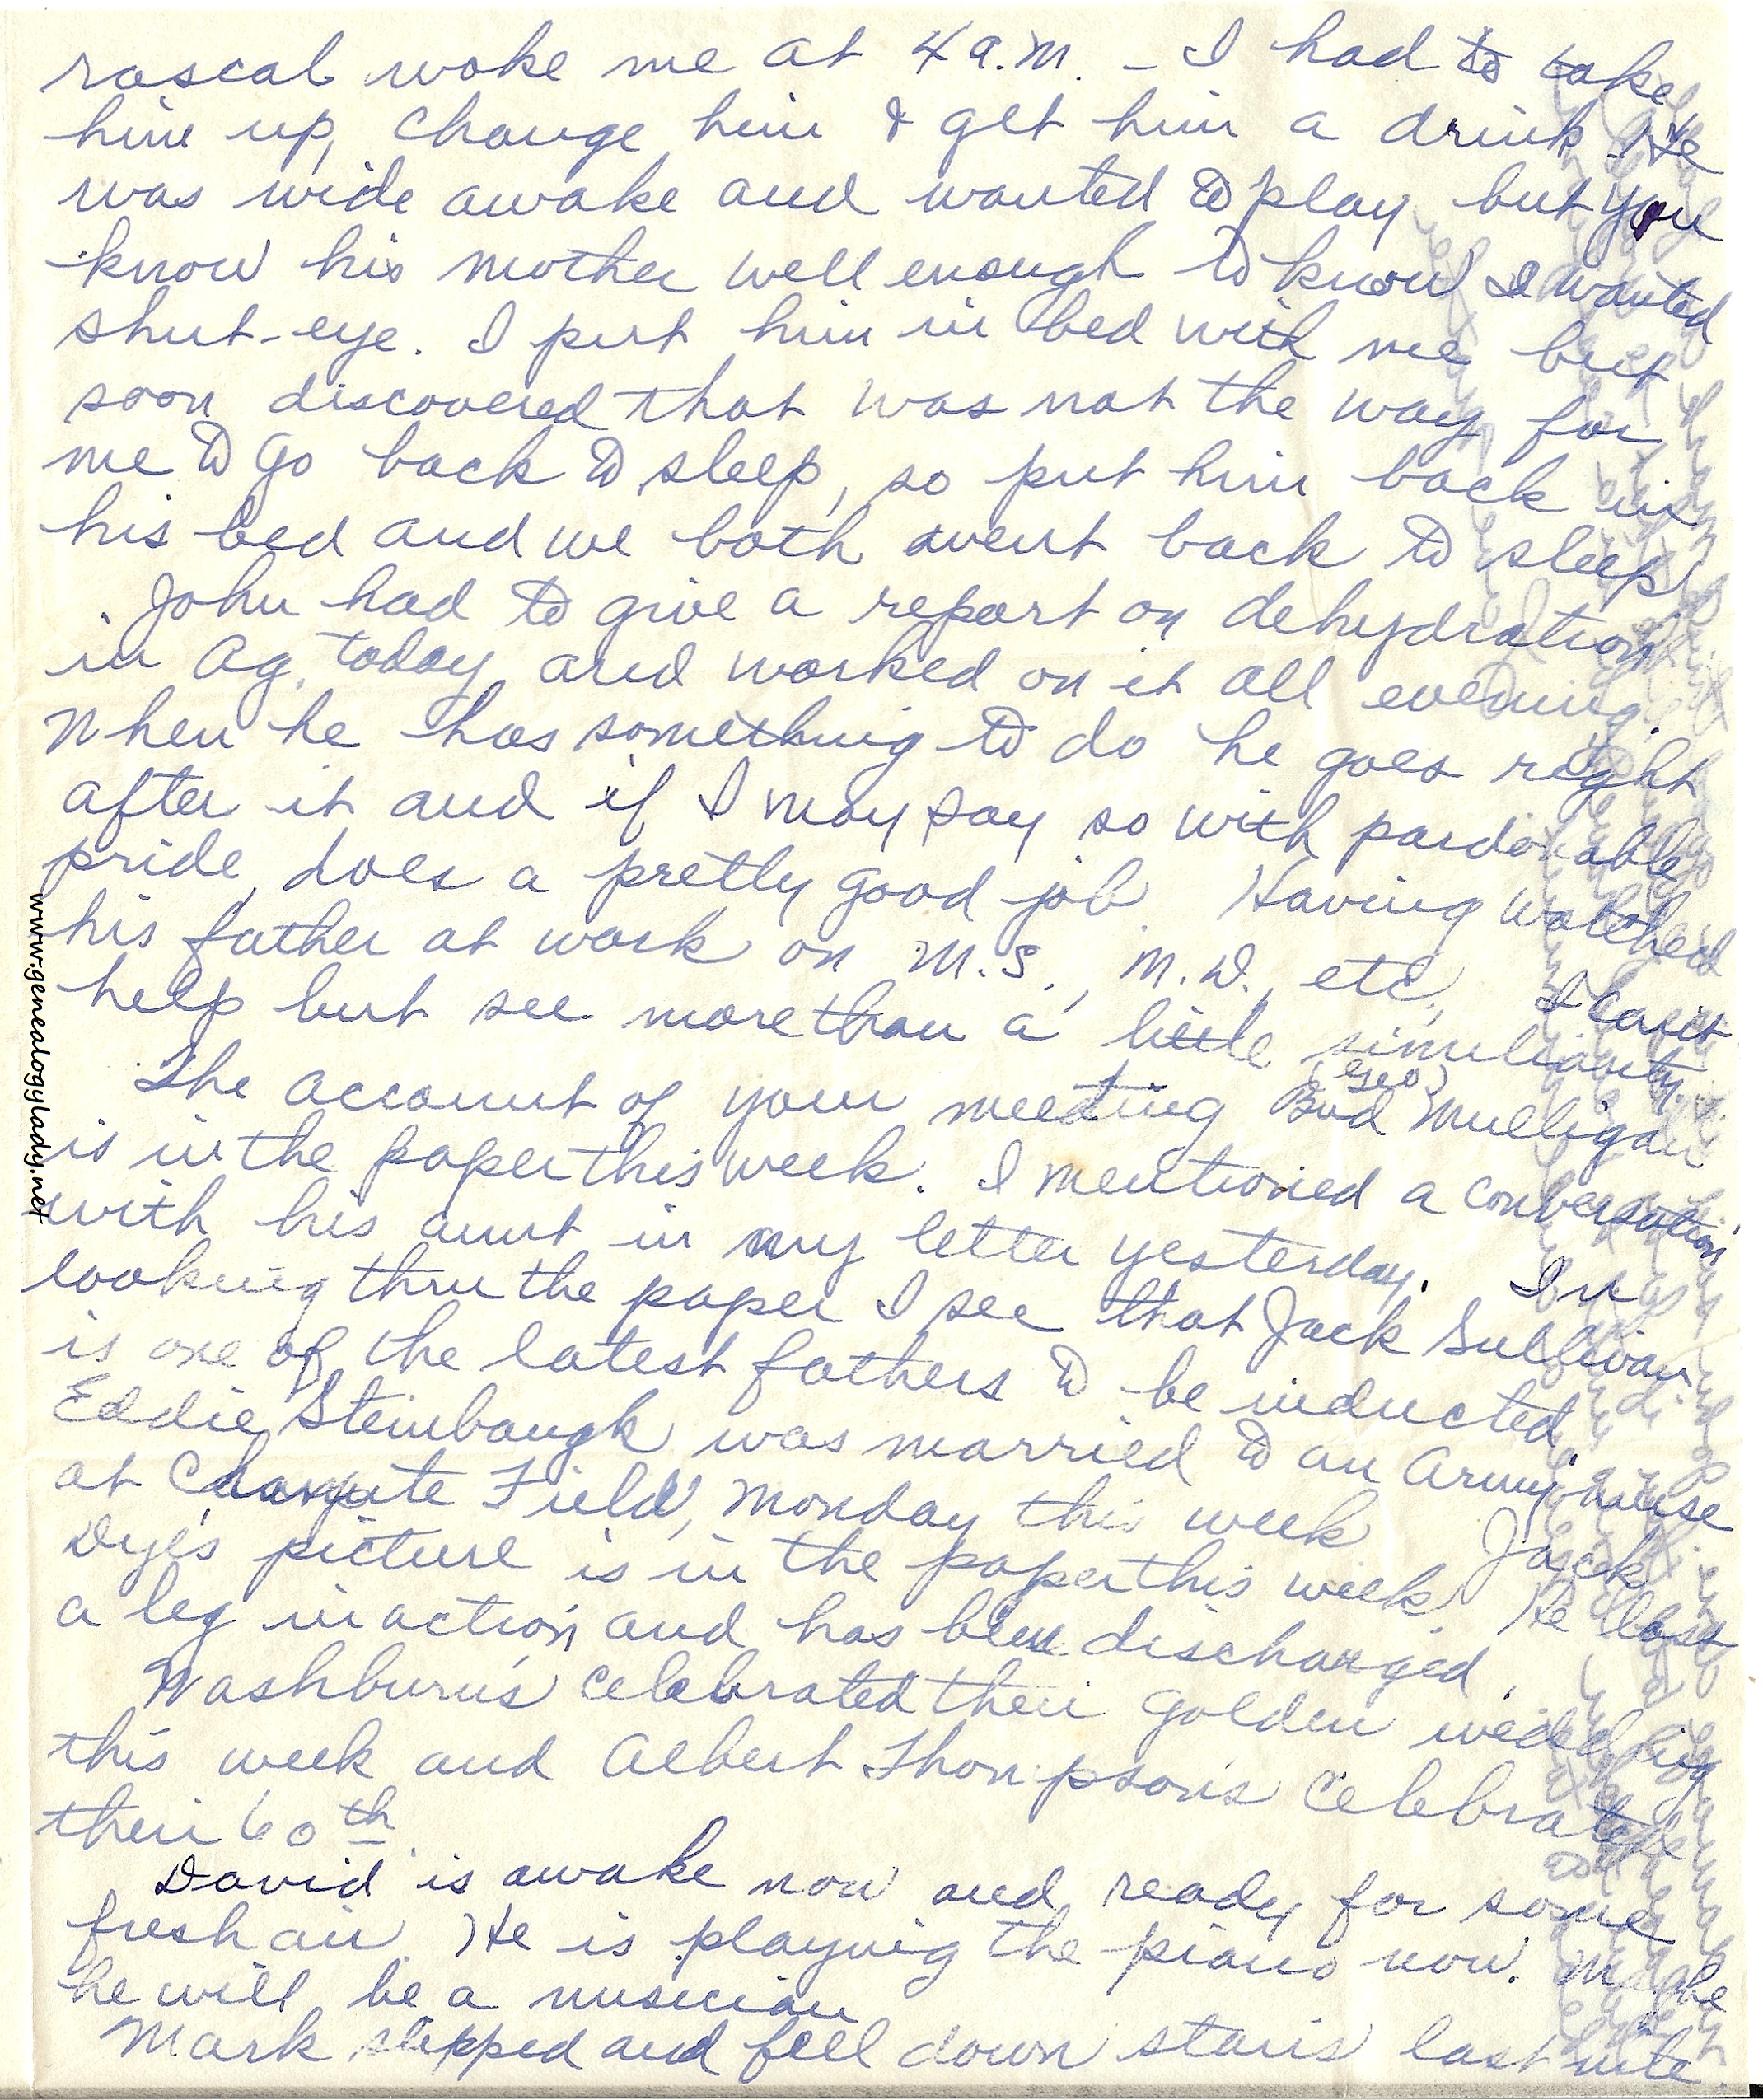 rascal woke me at 4 a.m. - I had to take
him up, change him & get him a drink. He
was wide awake and wanted to play but you
know his mother well enough to know I wanted
shut-eye. I put him in bed with me but
soon discovered that was not the way for
me to go back to sleep, so put him back in
his bed and we both went back to sleep.
John had to give a report on dehydration
in Ag. today and worked on it all evening.
When he has something to do he goes right
after it and if I may say so with pardonable
pride, does a pretty good job. Having watched
his father at work on M.S., M.D., etc., I can't
help but see more than a little similiarity.
(Geo)
The account of your meeting Bud Mulligan
is in the paper this week. I mentioned a conversation
with his aunt in my letter yesterday. In
looking thru the paper I see that Jack Sullivan
is one of the latest fathers to be inducted.
Eddie Steinbaugh was married to an Army nurse
at Chanute Field, Monday this week. Jack
Dye's picture is in the paper this week. He lost
a leg in action and has been discharged.
Washburn's celebrated their golden wedding
this week and Albert Thompson's celebrate
their 60th.
David is awake now and ready for some
fresh air. He is playing the piano now. Maybe
he will be a musician
Mark slipped and fell down stairs last nite.
www.genealogylady.net